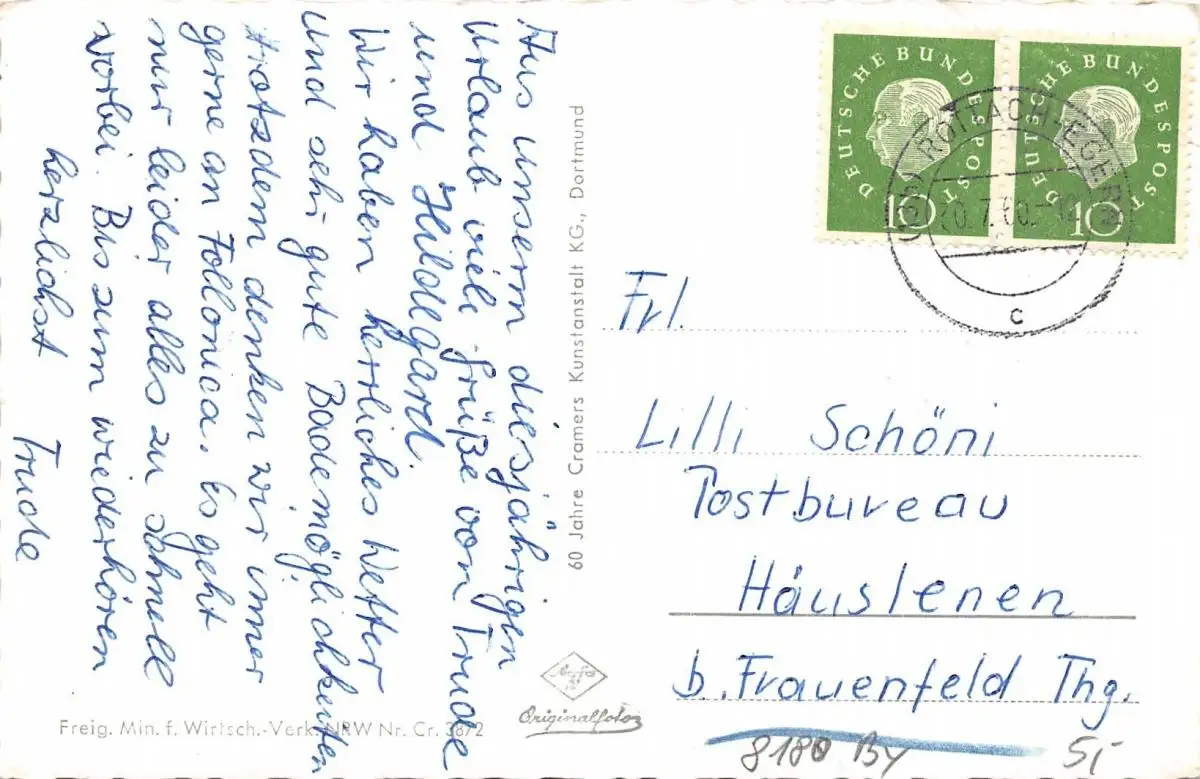 Aus unserm diesjährigen
Urlaub viele Grüße von Trude
und Hildegard.
Wir haben herrliches Wetter
und sehr gute Bademöglichkeiten
trotzdem denken wir immer
gerne an Follonica. Es geht
nur leider alles zu schnell
vorbei. Bis zum wiederhören
herzlichst
Trude
60 Jahre Cramers Kunstanstalt KG., Dortmund
DEUTSCHE BUNDESPOST
10
DEUTSCHE BUNDESPOST
10
ROTTACH-EGERN
7.60.
c
Frl.
Lilli Schöni
Postbureau
Häuslenen
b. Frauenfeld Thg.
Originalfoto
Freig. Min. f. Wirtsch.-Verk. NRW Nr. Cr. 3872
8180 By 5,-